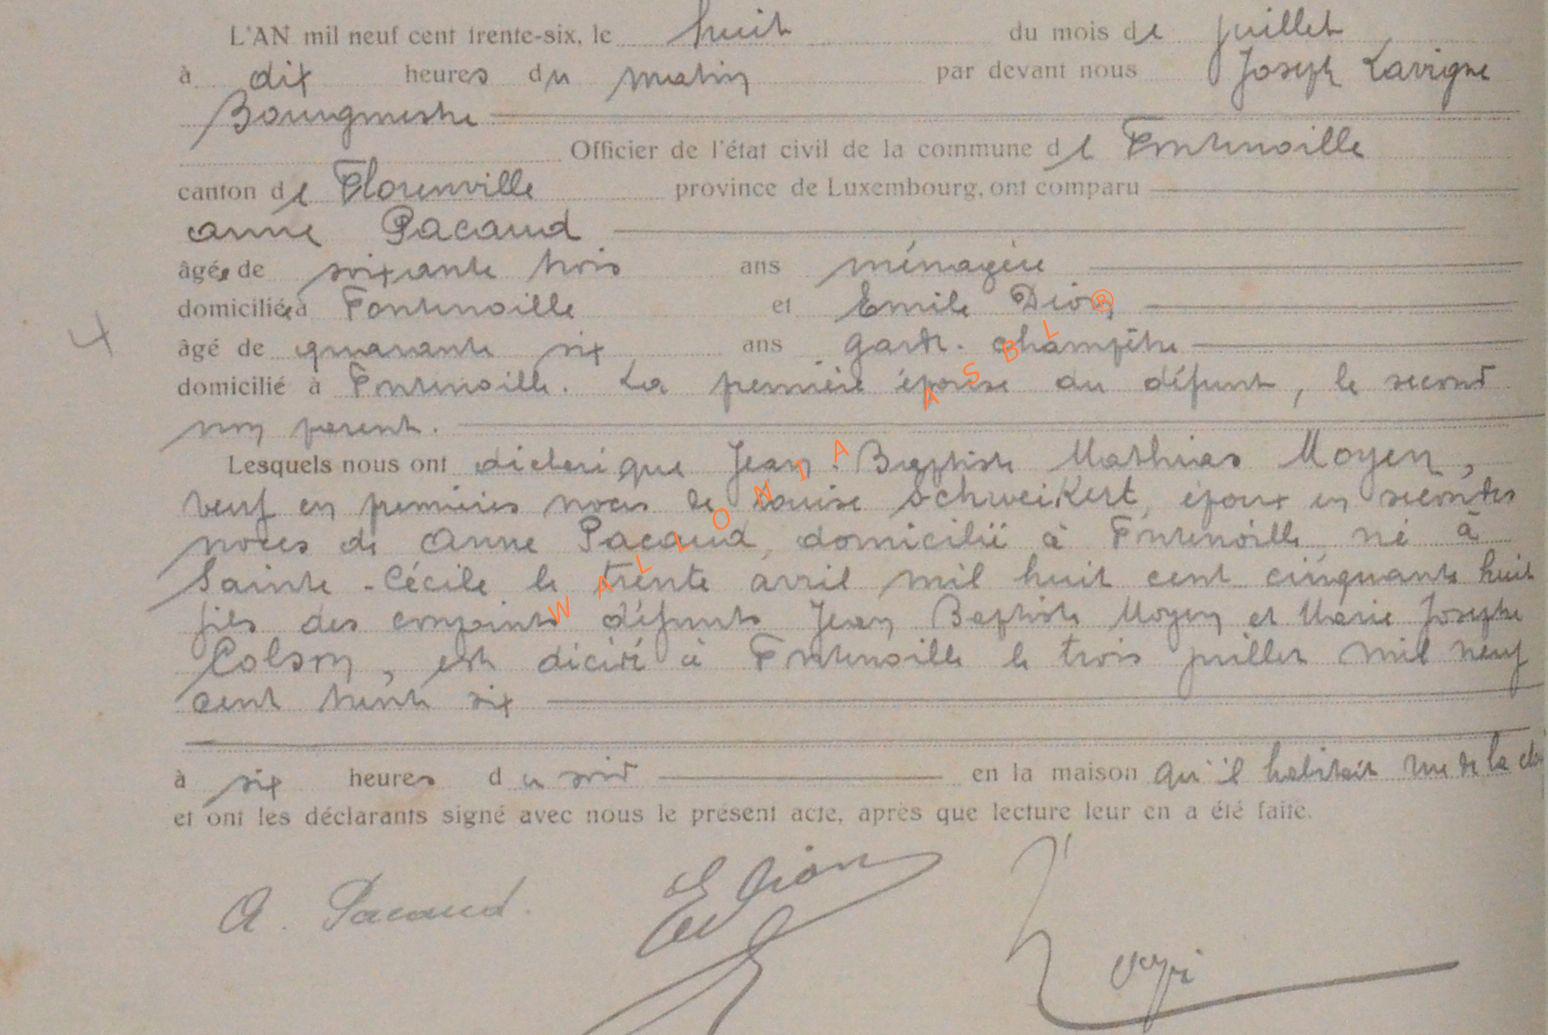 L'AN mil neuf cent trente-six, le huit du mois de juillet
à dix heures du matin par devant nous Joseph Lavigne
Bourgmestre
Officier de l'état civil de la commune de Fontenoille
canton de Florenville province de Luxembourg, ont comparu
Anne Pacaud
âgée de soixante trois ans ménagère
domiciliée à Fontenoille et Emile Dion
âgé de quarante six ans garde-champêtre
domicilié à Fontenoille. La première épouse du défunt, le second
non parent.
Lesquels nous ont déclaré que Jean-Baptiste Mathias Moyen,
veuf en premières noces de Louise Schweikert, époux en secondes
noces de Anne Pacaud, domicilié à Fontenoille né à
Sainte-Cécile le trente avril mil huit cent cinquante huit
fils des conjoints défunts Jean Baptiste Moyen et Marie Josephe
Colson, est décédé à Fontenoille le trois juillet mil neuf
cent trente six
à six heures du soir en la maison qu'il habitait rue de la
et ont les déclarants signé avec nous le présent acte, après que lecture leur en a été faite.
A. Pacaud.
E Dion
4
WALLONIA ASBL ®